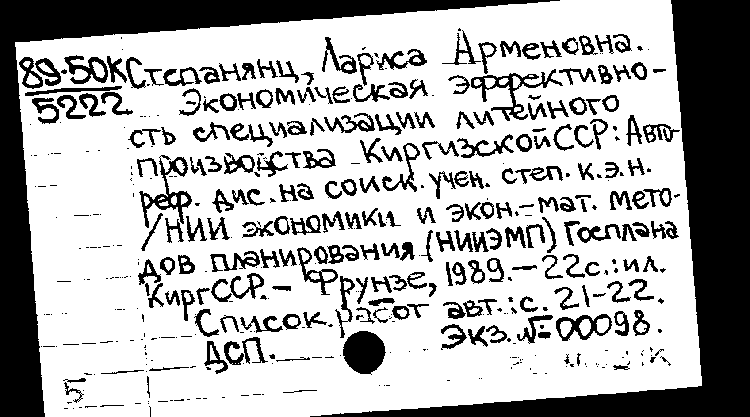 89-50К Степанянц, Лариса Арменовна.
5222 Экономическая эффективно-
сть специализации литейного
производства Киргизской ССР: Авто-
реф. дис. на соиск. учен. степ. к.э.н.
/НИИ экономики и экон.-мат. мето-
дов планирования (НИИЭМП) Госплана
Кирг ССР. - Фрунзе, 1989. - 22с.: ил.
Список работ авт.: с. 21-22.
ДСП. Экз. №00098.
5